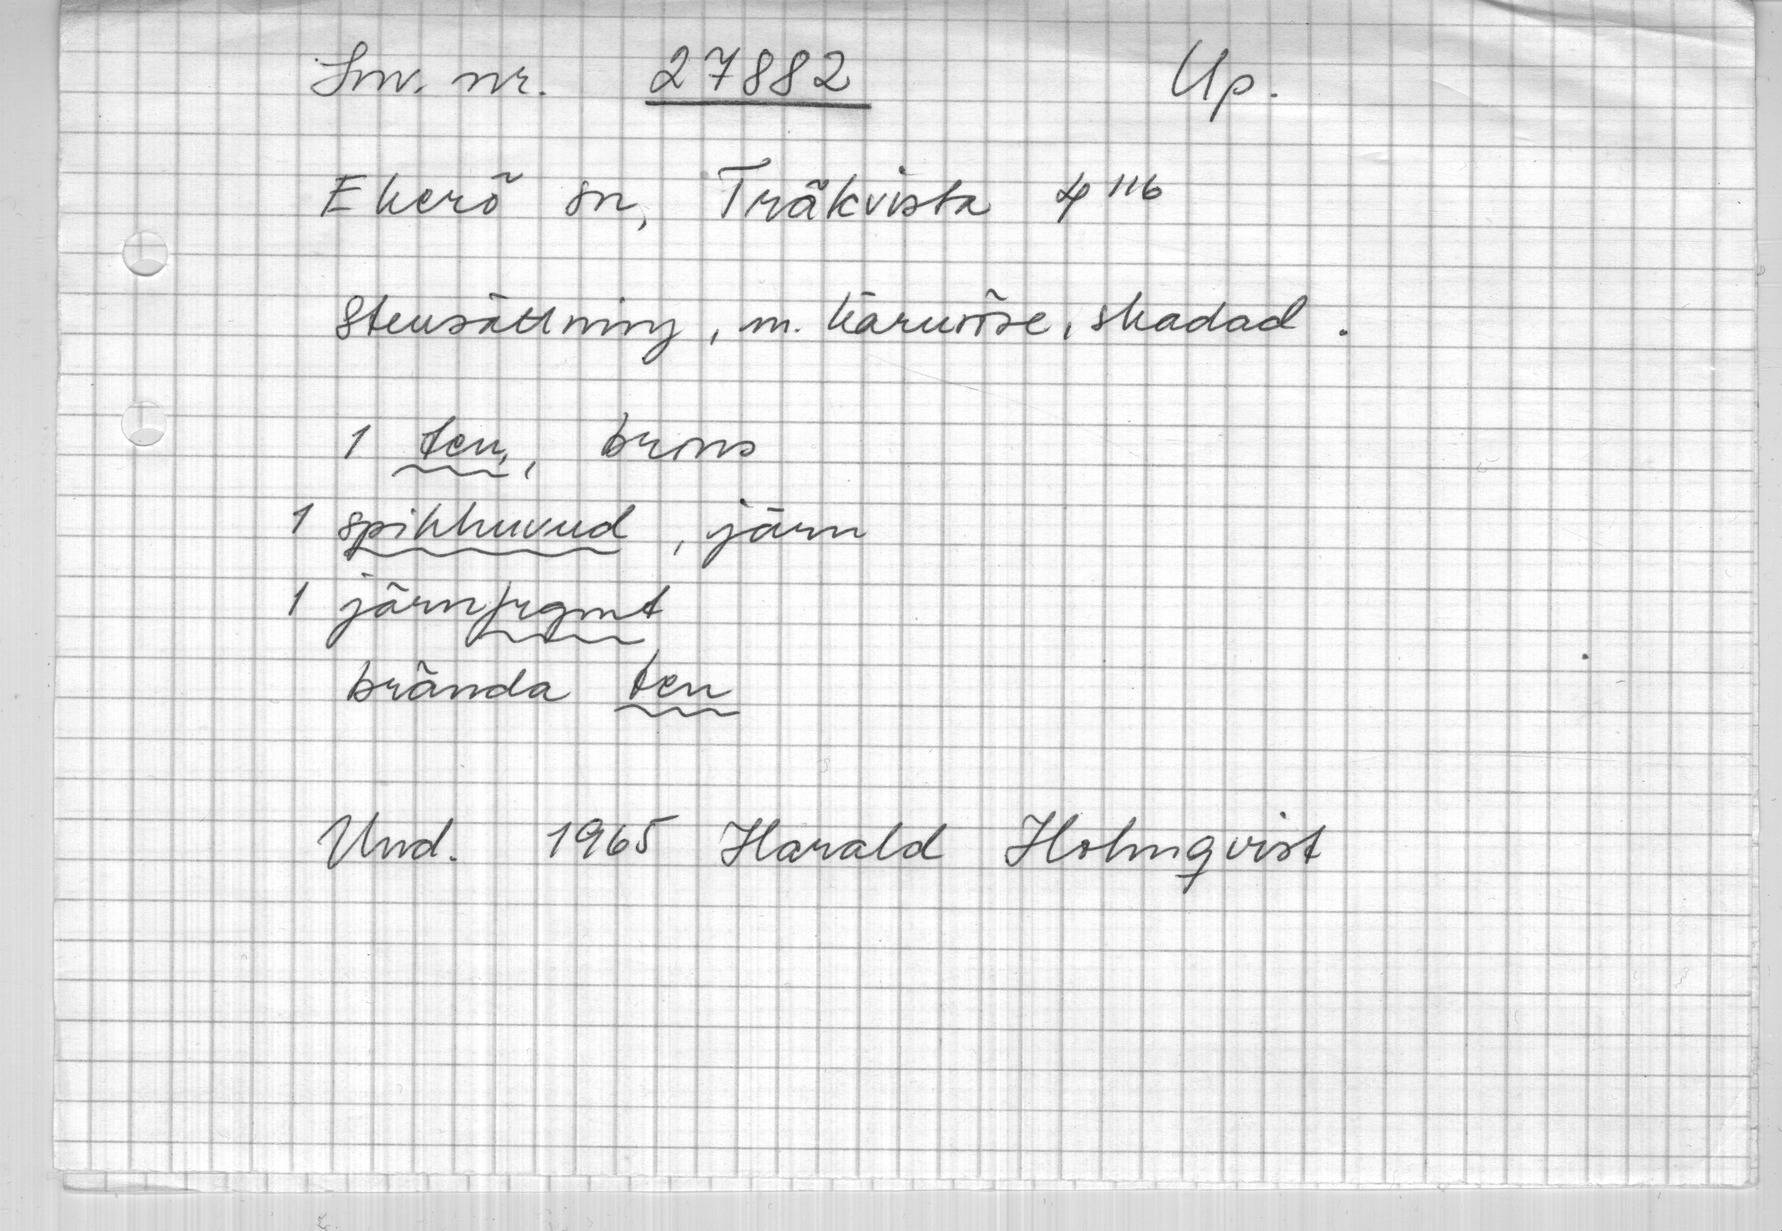 Inv. nr. 27882 Up.
Ekerö sn, Träkvista 4¹¹⁶
Stensättning, m. kärnröse, skadad.
1 ten, brons
1 spikhuvud, järn
1 järnfrgmt
brända ben
Und. 1965 Harald Holmqvist